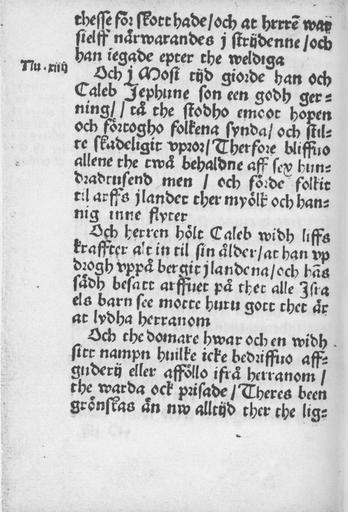 thesse för skott hade/och at hrrē̄ war
sielff närwarandes j strijdenne/och
han iegade epter the weldiga
Nu .xiiij
Och j Mosi tijd giorde han och
Caleb Jephune son een godh ger-
ning//tå the stodho emoot hopen
och förtogho folkena synda/och stil-
te skadeligit vpror/Therfore bliffuo
allene the twå behaldne aff sex hun-
dradtusend men / och förde folkit
til arffs jlandet ther myölk och han-
nig inne flyter
Och herren hölt Caleb widh liffs
kraffter alt in til sin ålder/at han vp
drogh vppå bergit jlandena/och hās
sädh besatt arffuet på thet alle Jsra
els barn see motte huru gott thet är
at lydha herranom
Och the domare hwar och en widh
sitt nampn huilke icke bedriffuo aff-
guderij eller afföllo ifrå herranom/
the warda ock prisade/Theres been
grönskas än nw alltijd ther the lig-